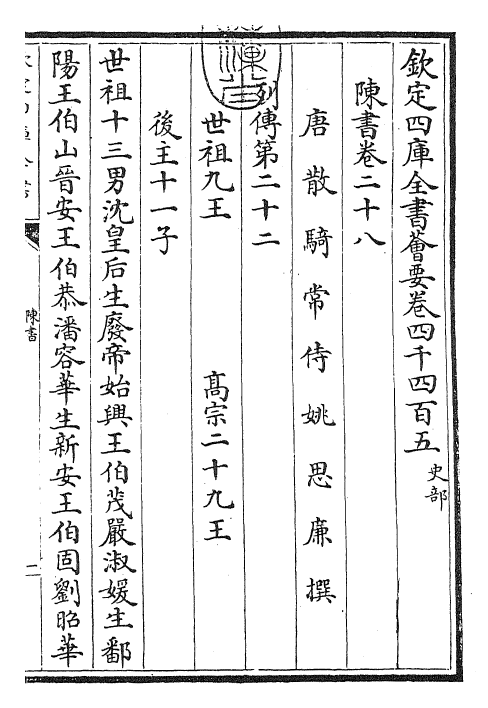 欽定四庫全書薈要卷四千四百五 史部
陳書卷二十八
唐散騎常侍姚思廉撰
列傳第二十二
世祖九王 髙宗二十九王
後主十一子
世祖十三男沈皇后生廢帝始興王伯茂嚴淑媛生鄱
陽王伯山晉安王伯恭潘容華生新安王伯固劉昭華
陳書